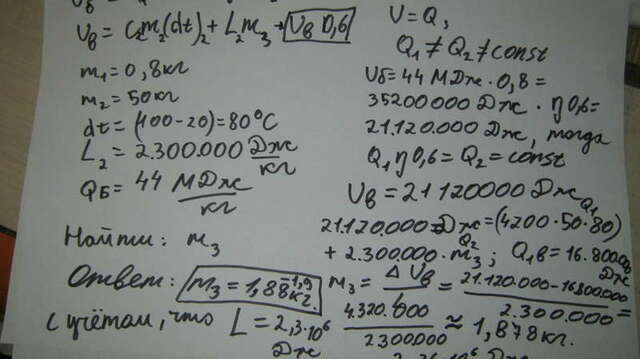 U_в = C₂m₂(dt)₂ + L₂m₃ + U_в 0,6
m₁ = 0,8кг
m₂ = 50кг
dt = (100-20) = 80°C
L₂ = 2.300.000 Дж/кг
Q_Б = 44 МДж/кг
Найти: m₃
Ответ: m₃ = 1,88 кг. -1,9
с учётом, что L = 2,3·10⁶
Дж
U = Q,
Q₁ ≠ Q₂ ≠ const
U_б = 44 МДж · 0,8 =
35200000 Дж · η0,6 =
21.120.000 Дж, тогда
Q₁ η0,6 = Q₂ = const
U_в = 21120000 Дж
21.120.000 Дж = (4200·50·80) Q₁
+ 2.300.000·m₃ Q₂; Q₁в = 16.800.000 Дж
m₃ = ΔU_в = 21.120.000-16800.000 / 2.300.000 =
4.320.000 / 2300000 ≈ 1,878кг.